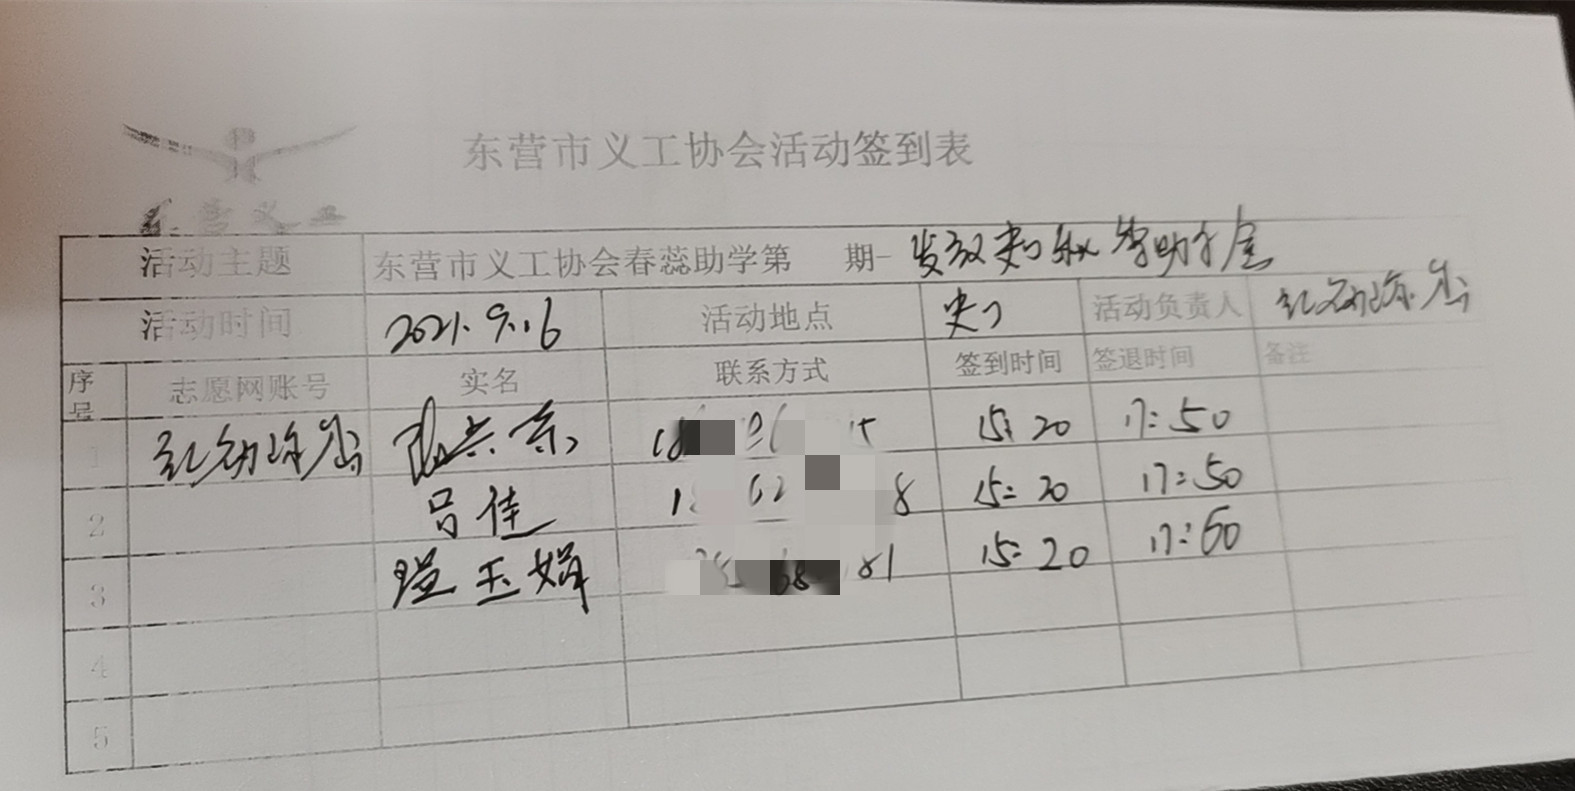 东营市义工协会活动签到表
东营义工
活动主题 东营市义工协会春蕊助学第 期- 发放史口 助学金
活动时间 2021.9.16 活动地点 史口 活动负责人
序号 志愿网账号 实名 联系方式 签到时间 签退时间 备注
1 兴东 15:20 17:50
2 吕佳 8 15:20 17:50
3 玉娟 181 15:20 17:50
4
5